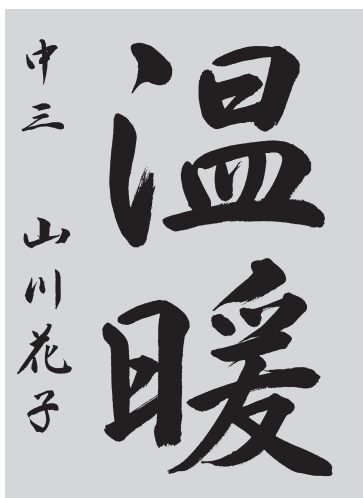 温暖
中三 山川花子